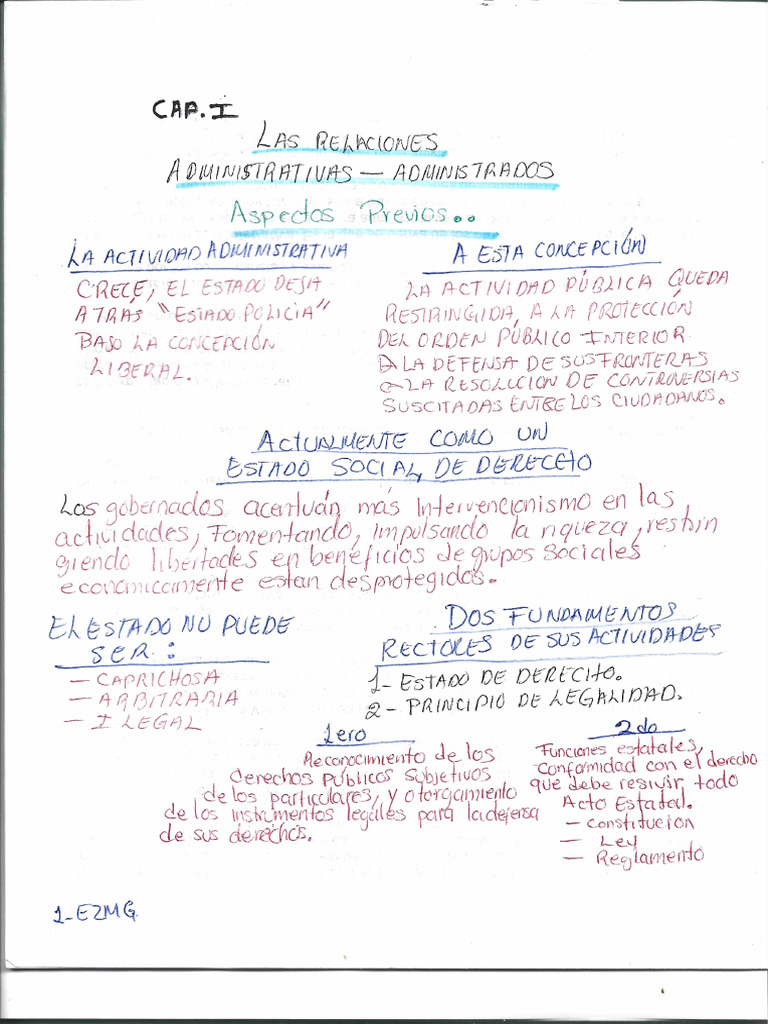 CAP. I
LAS RELACIONES
ADMINISTRATIVAS — ADMINISTRADOS
Aspectos Previos..
LA ACTIVIDAD ADMINISTRATIVA
CRECE, EL ESTADO DEJA
ATRÁS "ESTADO POLICIA"
BAJO LA CONCEPCIÓN
LIBERAL.
A ESTA CONCEPCIÓN
LA ACTIVIDAD PÚBLICA QUEDA
RESTRINGIDA, A LA PROTECCIÓN
DEL ORDEN PÚBLICO INTERIOR.
A LA DEFENSA DE SUS FRONTERAS
A LA RESOLUCION DE CONTROVERSIAS
SUSCITADAS ENTRE LOS CIUDADANOS.
ACTUALMENTE COMO UN
ESTADO SOCIAL, DE DERECHO
Los gobernados acentuán más Intervencionismo en las
actividades, Fomentando, impulsando la riqueza, restrin
giendo libertades en beneficios de grupos Sociales
economicamente estan desprotegidos.
EL ESTADO NO PUEDE
SER:
— CAPRICHOSA
— ARBITRARIA
— I LEGAL
DOS FUNDAMENTOS
RECTORES DE SUS ACTIVIDADES
1- ESTADO DE DERECHO.
2- PRINCIPIO DE LEGALIDAD.
1ero
Reconocimiento de los
derechos públicos subjetivos
de los particulares, y otorgamiento
de los instrumentos legales para la defensa
de sus derechos.
2do
Funciones estatales,
conformidad con el derecho
que debe resivir todo
Acto Estatal.
— Constitución
— Ley
— Reglamento
1-EZMG.